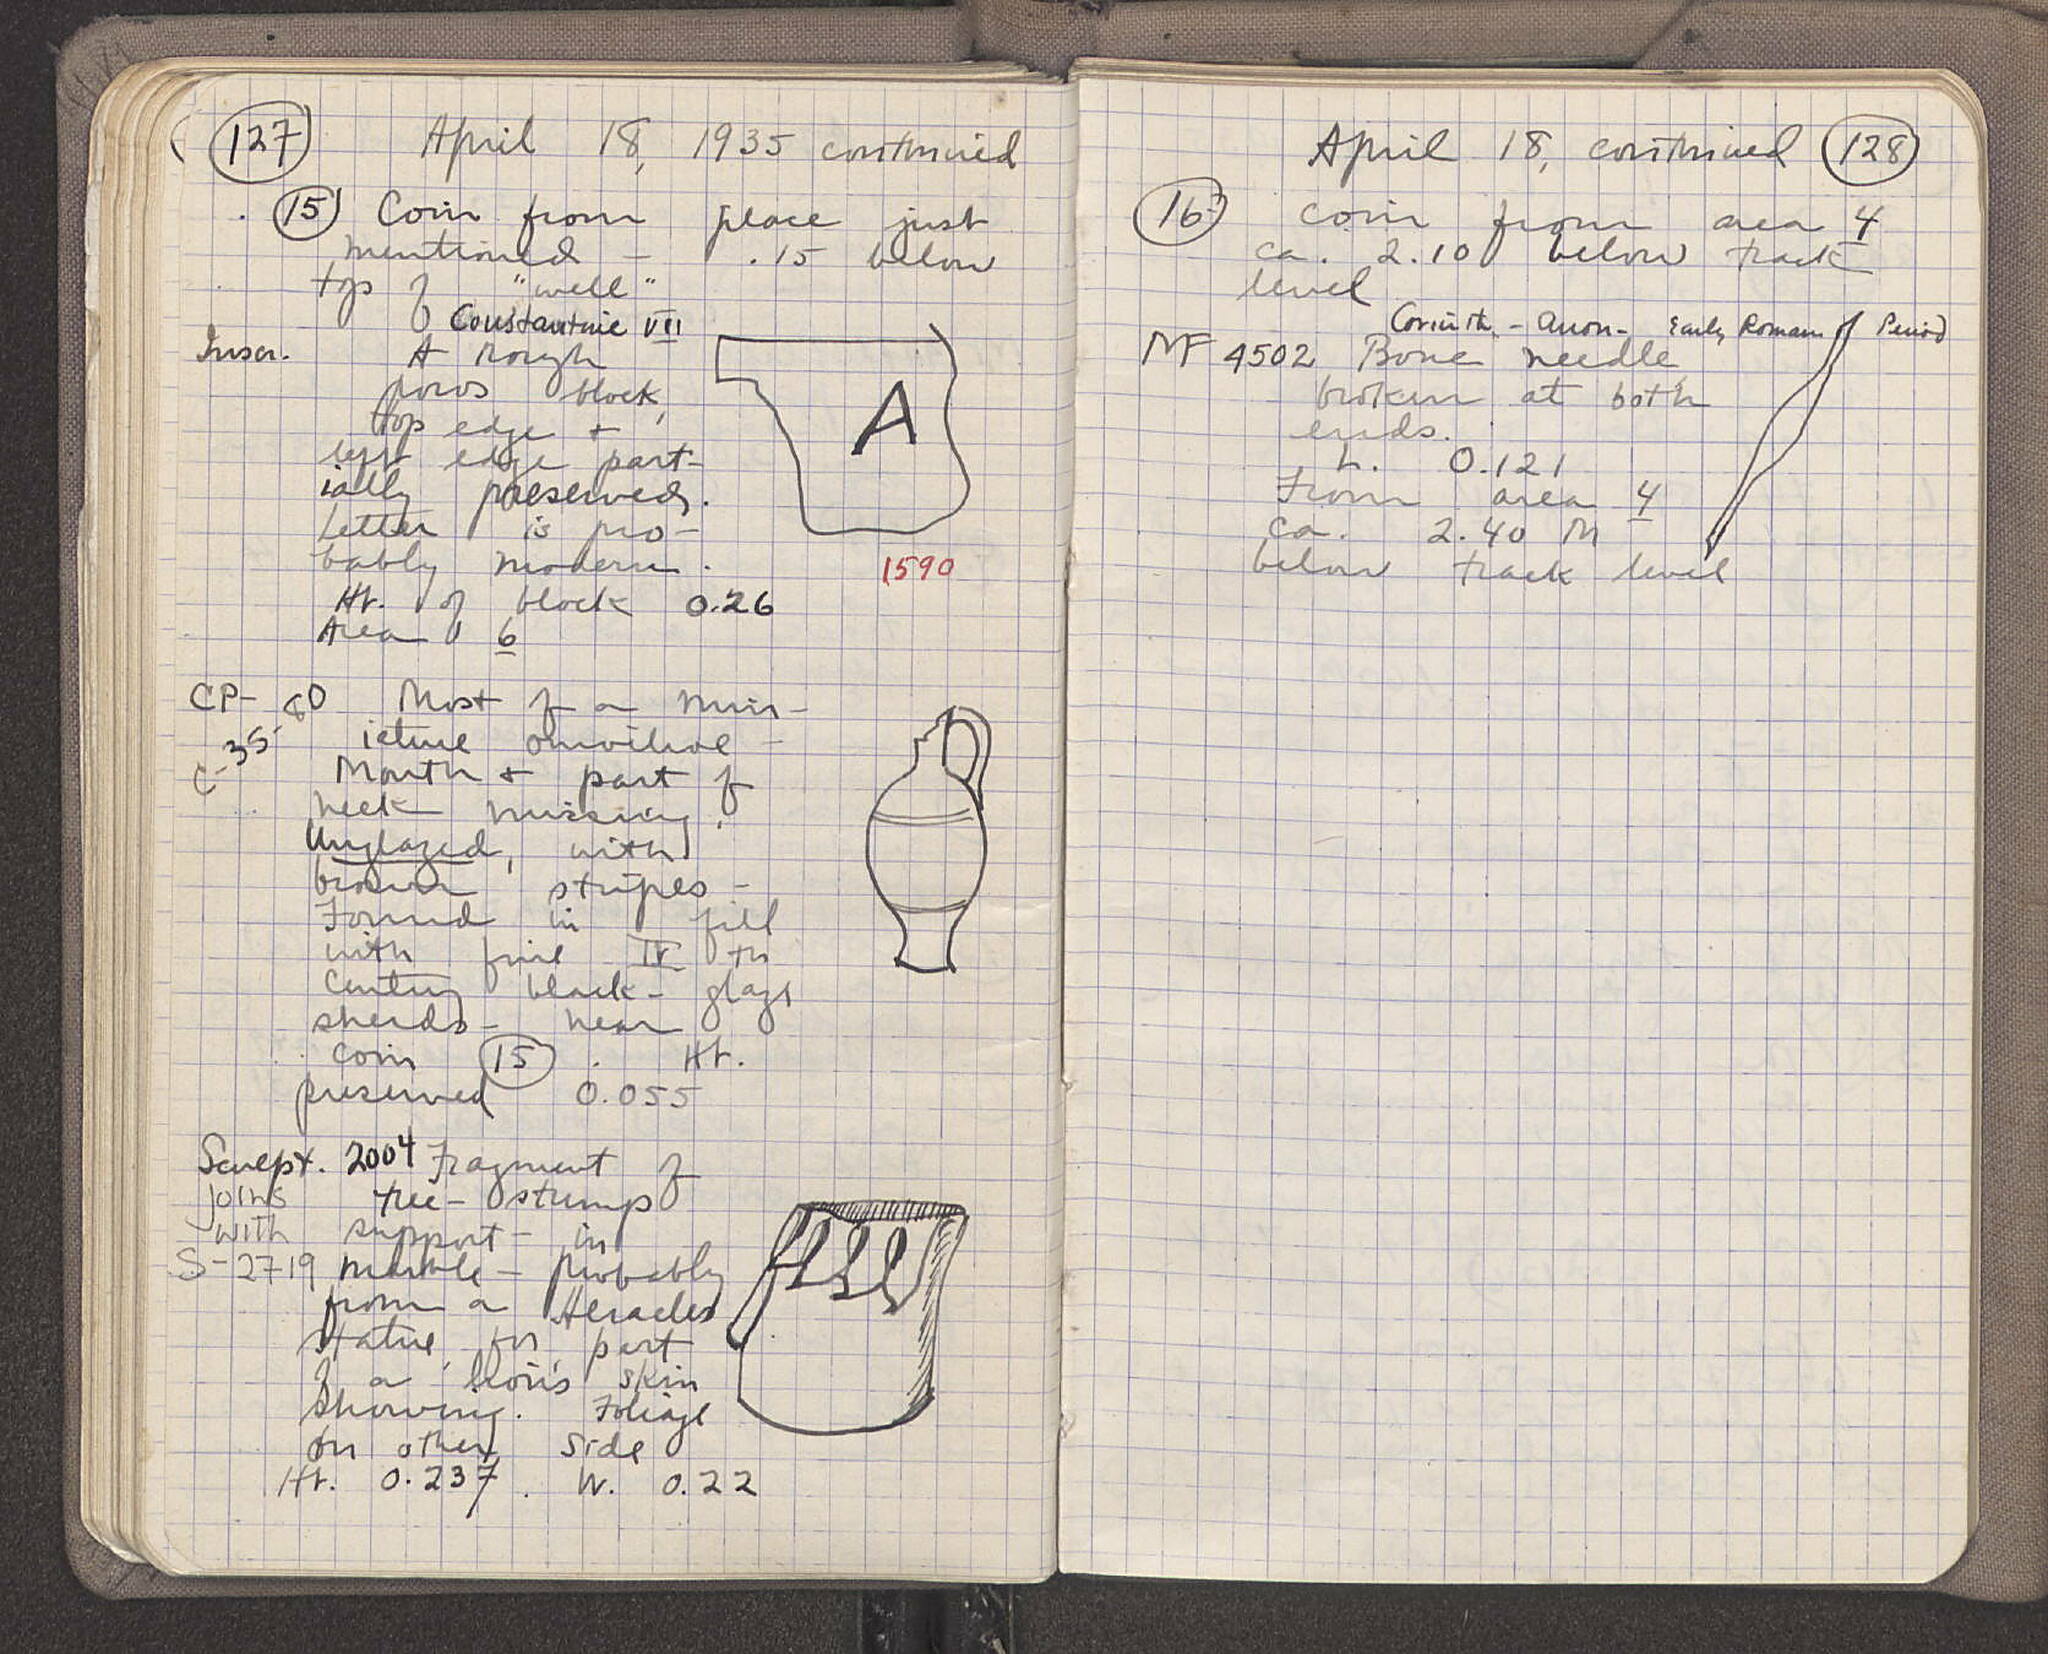 127 April 18, 1935 continued
15 Coin from place just
mentioned - .15 below
top of "well"
Constantine VII
Inscr. A rough
poros block,
top edge +
left edge part-
ially preserved.
Letter is pro-
bably modern.
Ht. of block 0.26
Area 6
A
1590
CP- 80 Most of a min-
C-35- iature oinochoe -
Mouth + part of
neck missing.
Unglazed, with
brown stripes -
Found in fill
with fine IV th
Century black-glaze
sherds - near
coin 15. Ht.
preserved 0.055
Sculpt. 2004 Fragment of
joins tree-stump
with support - in
S-2719 marble - probably
from a Heracles
statue, for part
of a lion's skin
showing. Foliage
on other side
Ht. 0.237. W. 0.22
April 18, continued 128
16 coin from area 4
ca. 2.10 below track
level
Corinth - Anon - Early Roman Period
MF 4502 Bone needle
broken at both
ends.
L. 0.121
From area 4
ca. 2.40 M
below track level